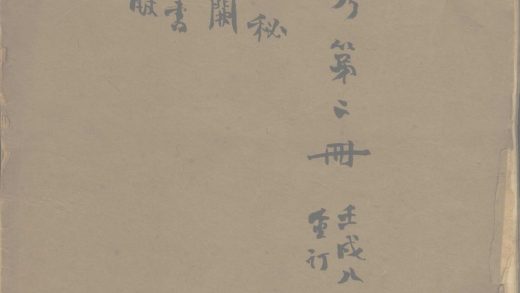 第二冊
壬戌八
重訂
秘
書